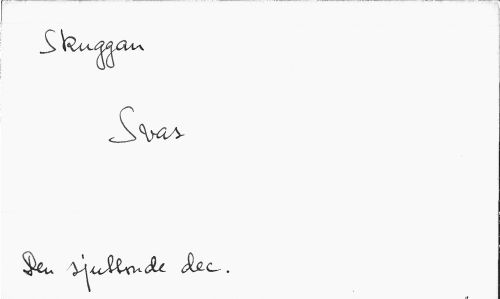 Skuggan
Svas
Den sjuttonde dec.